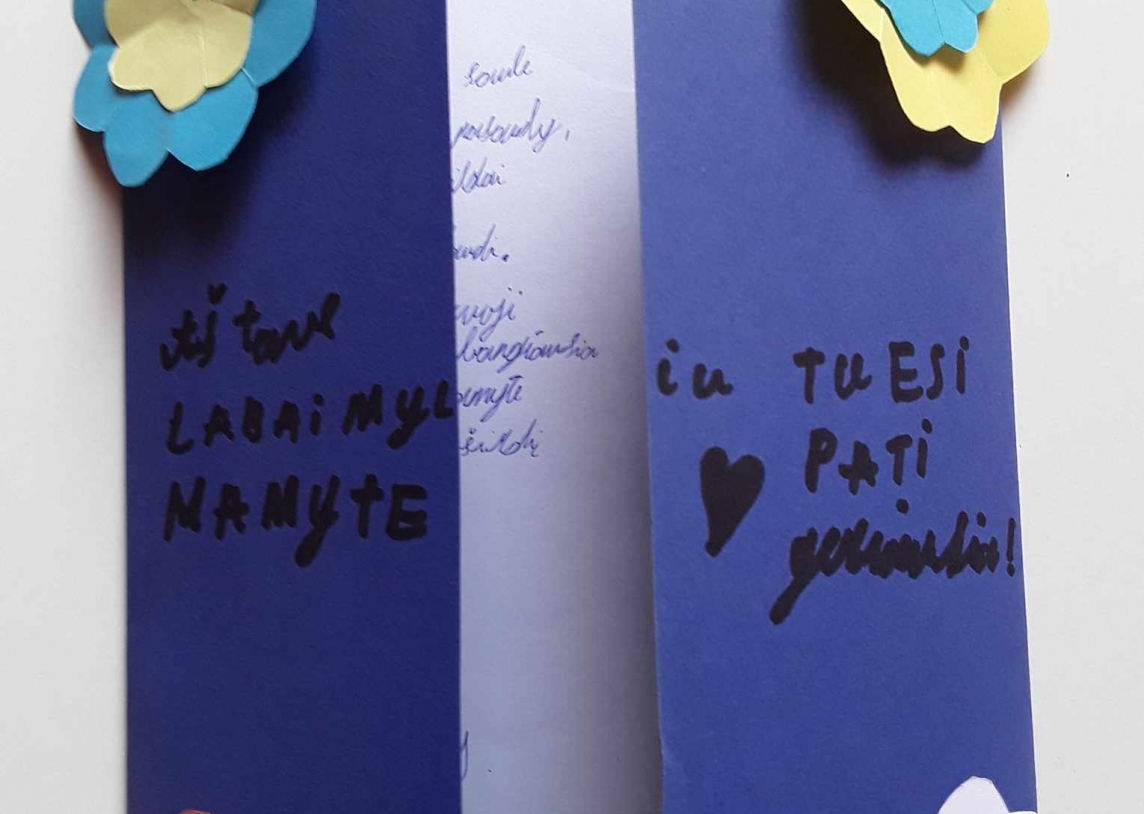 Aš tave
LABAI MYL
NAMYTE
saulė
ildai
voji
brangiausia
amyte
širdį
iu
TU ESI
PATI
geriausia!